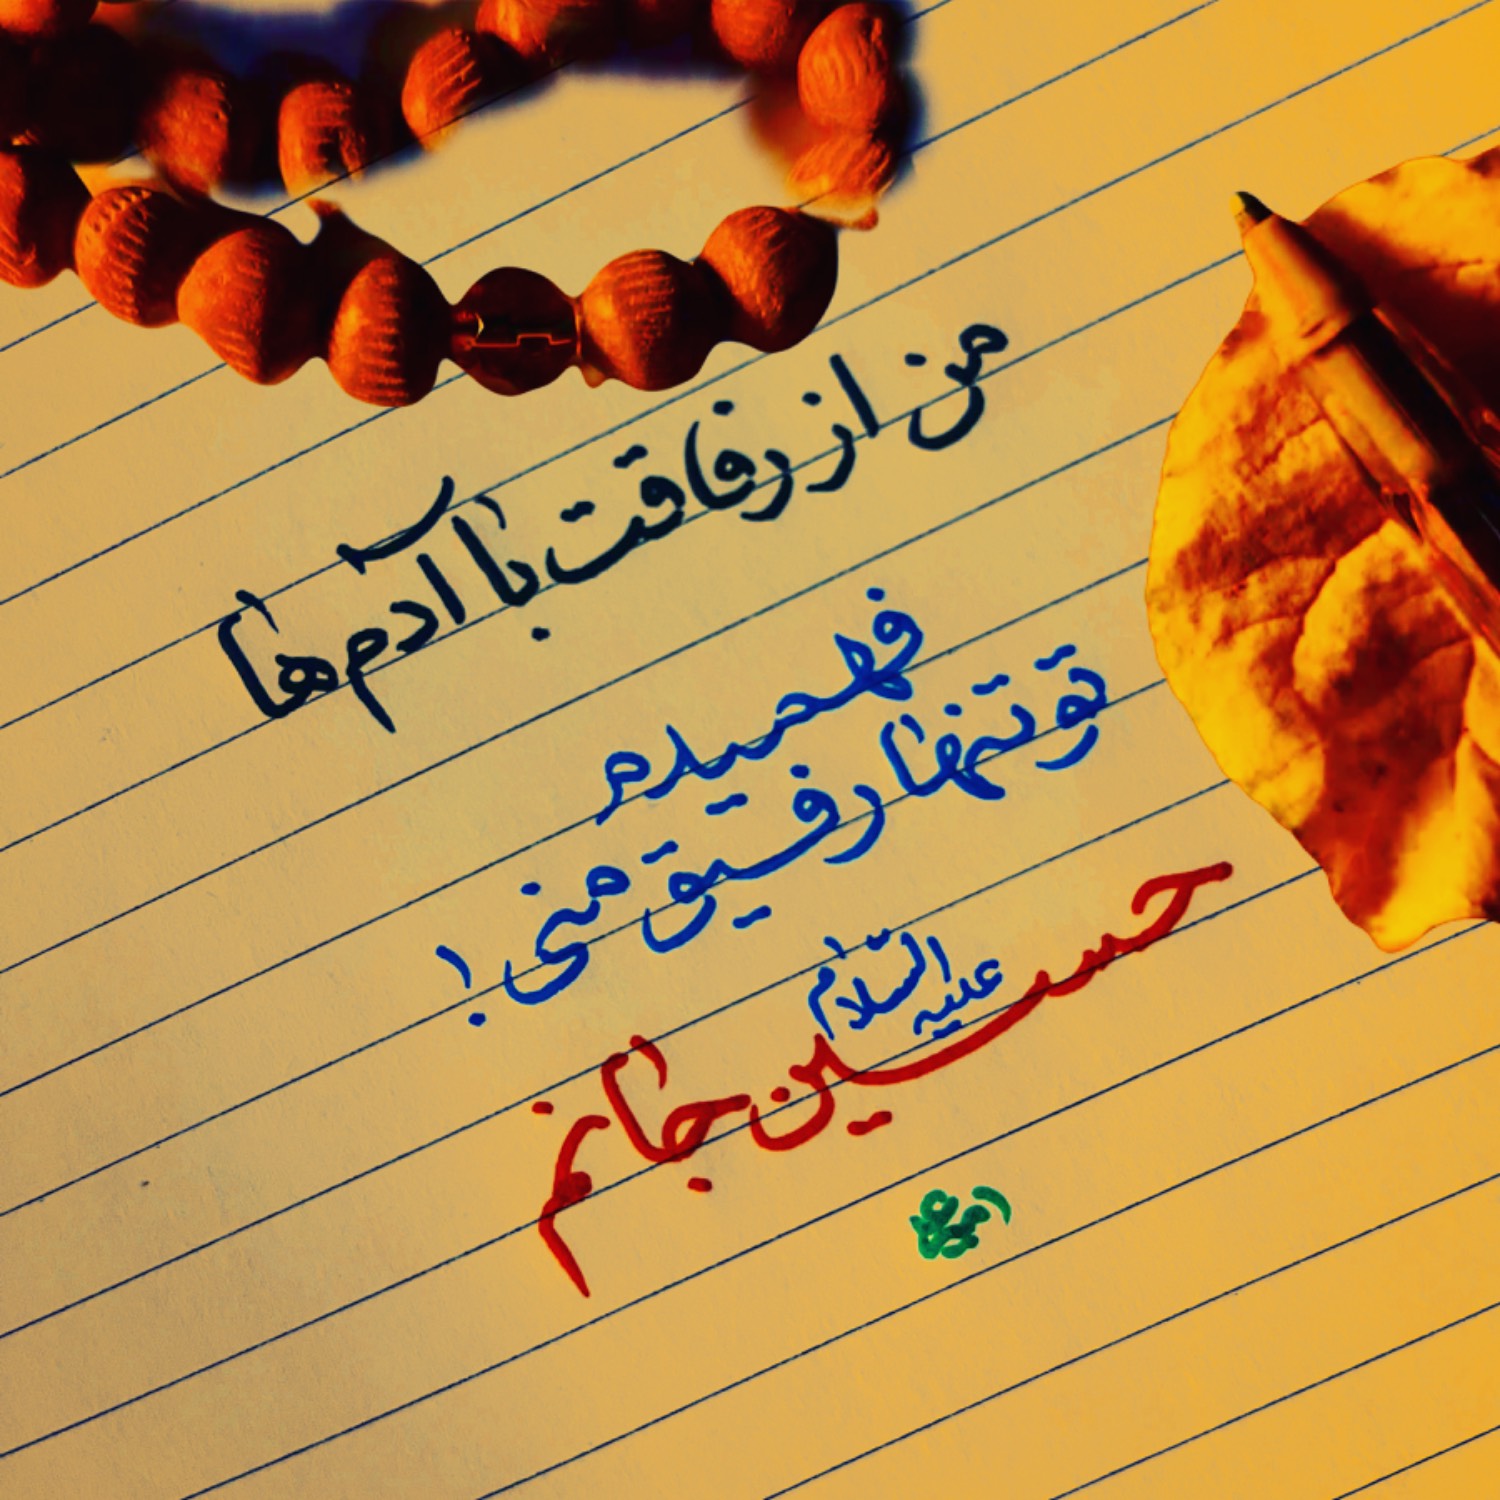 من از رفاقت با آدم ها
فهمیدم
تو تنها رفیق منی !
حسین جانم
علیه السلام